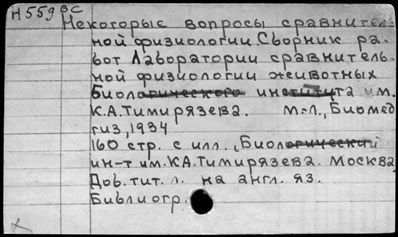 Н559 ВС
Некоторые вопросы сравнитель-
ной физиологии. Сборник ра-
бот Лаборатории сравнитель-
ной физиологии животных
Биологического института им.
К.А.Тимирязева. М.-Л., Биомед
гиз, 1934
160 стр. с илл., Биологический
ин-т им. К.А.Тимирязева. Москва
Доб. тит. л. на англ. яз.
Библиогр.